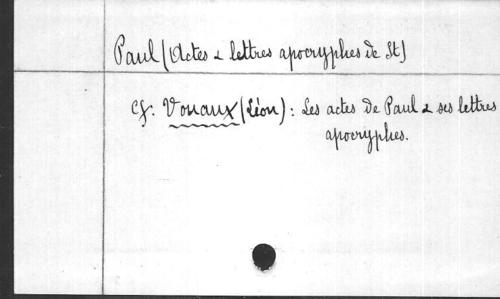 Paul (Actes & lettres apocryphes de St)
cf. Vouaux (Léon) : Les actes de Paul & ses lettres
apocryphes.